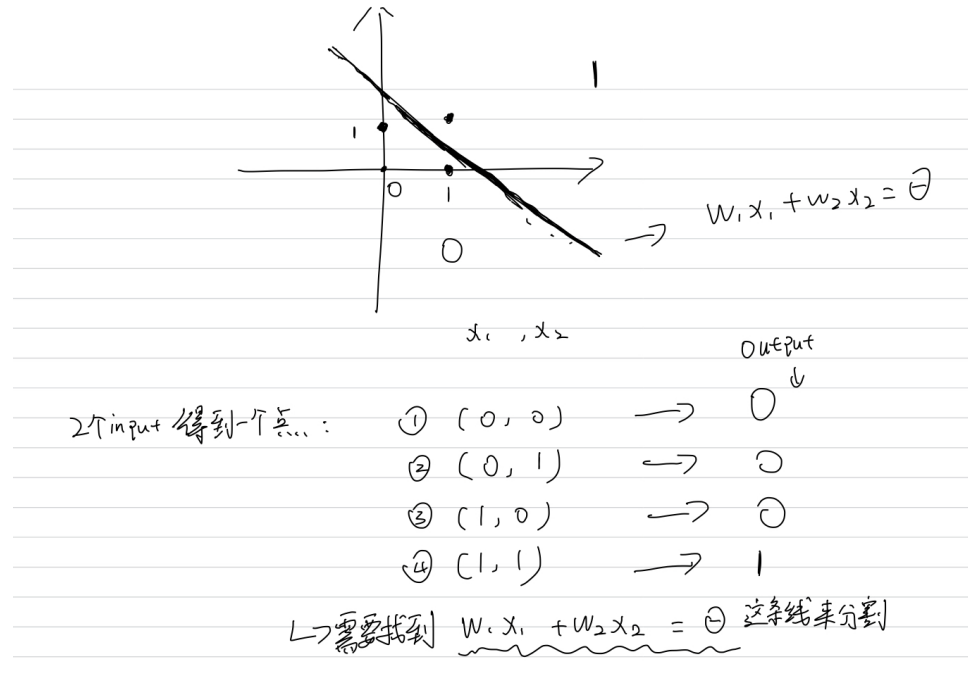 1
1
0 1
w₁x₁ + w₂x₂ = θ
0
x₁ , x₂
output
↓
2个input 得到一个点: ① (0, 0) → 0
② (0, 1) → 0
③ (1, 0) → 0
④ (1, 1) → 1
↳ 需要找到 w₁x₁ + w₂x₂ = θ 这条线来分割